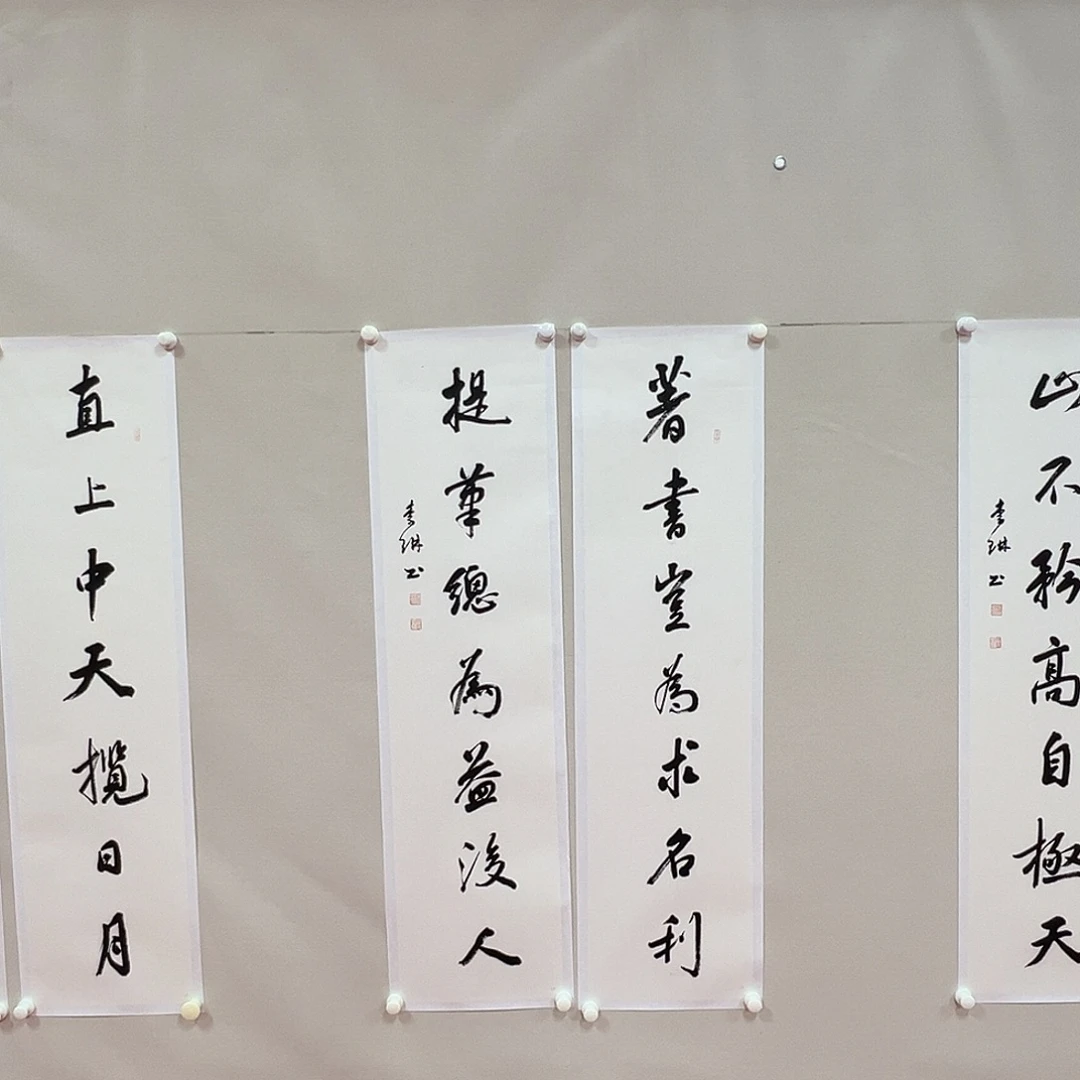 山不矜高自極天
李琳书
著書豈為求名利
提筆總為益後人
李琳书
直上中天攬日月